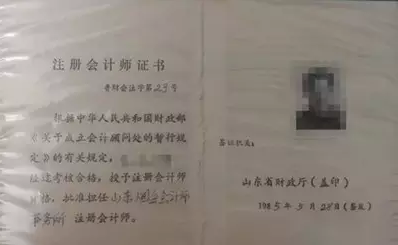 注册会计师证书
鲁财会注字第23号
根据中华人民共和国财政部
《关于成立会计顾问处的暂行规
定》的有关规定,
经逐考核合格,授予注册会计师
资格,批准担任山东烟台会计师
事务所 注册会计师。
签证机关:
山东省财政厅(盖印)
1985年5月28日(签发)